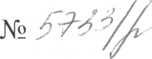 № 5733/